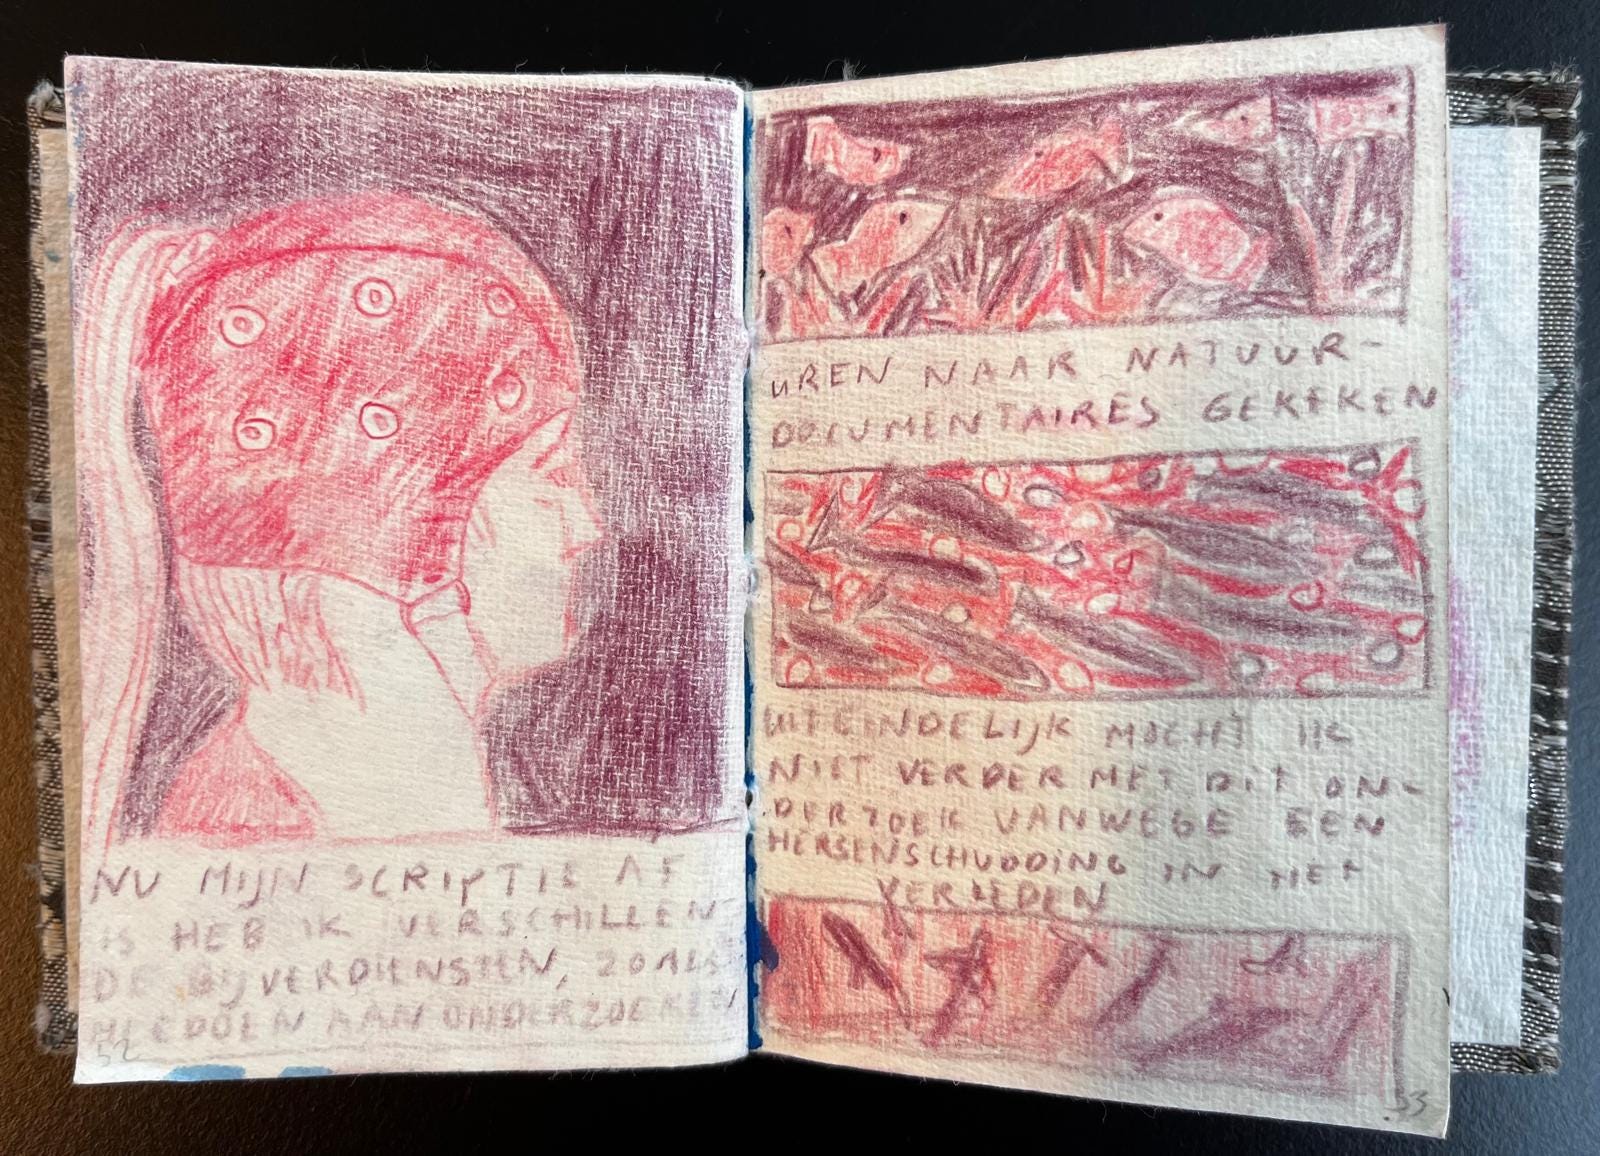 NU MIJN SCRIPTIE AF
IS HEB IK VERSCHILLEN-
DE BIJVERDIENSTEN, ZOALS
MEEDOEN AAN ONDERZOEKEN
52
UREN NAAR NATUUR-
DOCUMENTAIRES GEKEKEN
UITEINDELIJK MOCHT IK
NIET VERDER MET DIT ON-
DERZOEK VANWEGE EEN
HERSENSCHUDDING IN HET
VERLEDEN
53